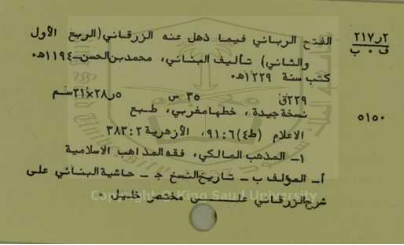 ٢ر٢١٧
ف٠ب
الفتح الرباني فيما ذهل عنه الزرقاني (الربع الأول
والثاني) تأليف البناني، محمد بن الحسن ـ ١١٩٤هـ٠
كتب سنة ١٢٢٩هـ٠
٢٢٩ق ٣٥ س ٥ر٢٨×٢١سم
نسخة جيدة، خطها مغربي، طبع
٥١٥٠
الاعلام (ط٤) ٩١:٦، الأزهرية ٣٨٣:٢
١ـ المذهب المالكي، فقه المذاهب الاسلامية
أـ المؤلف ب ـ تاريخ النسخ ج ـ حاشية البناني على
شرح الزرقاني على مختصر خليل٠
Copyright © King Saud University